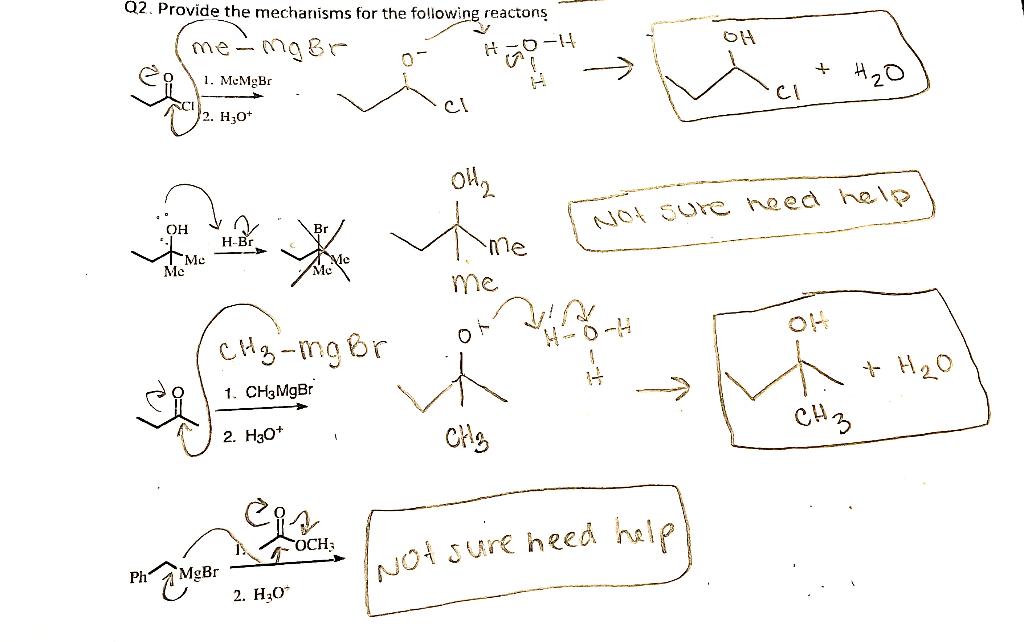 Q2. Provide the mechanisms for the following reactons
me-mgBr
O
1. MeMgBr
Cl
2. H3O+
O-
Cl
H-O-H
H
OH
Cl
+ H2O
OH
H-Br
Me
Me
Br
Me
Me
OH2
me
me
Not sure need help
CH3-mgBr
O
1. CH3MgBr
2. H3O+
O+
CH3
H-O-H
H
OH
CH3
+ H2O
O
1.
OCH3
Ph
MgBr
2. H3O+
Not sure need help